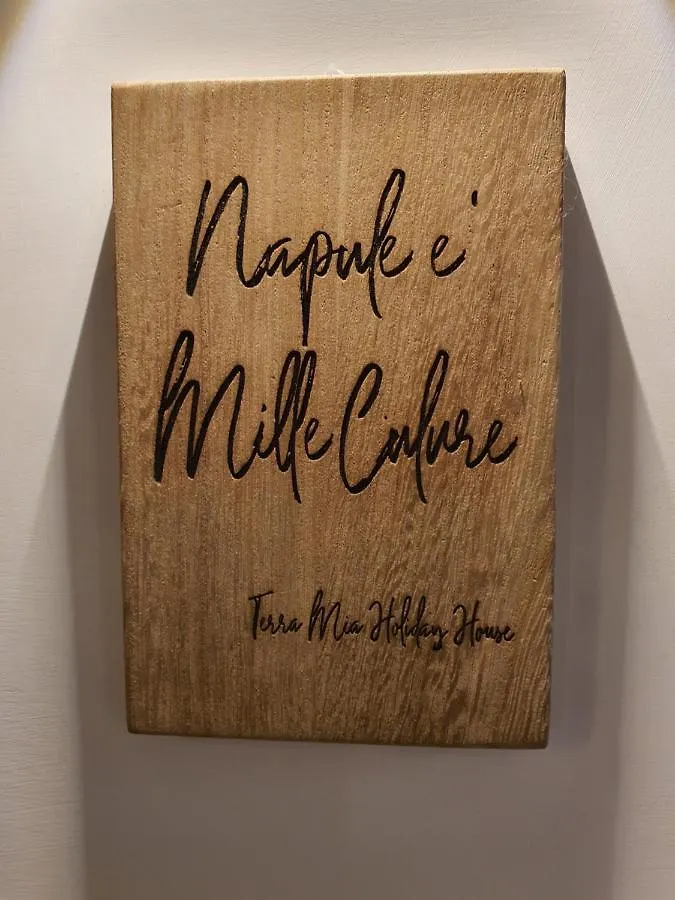 Napule e'
Mille Culure
Terra Mia Holiday House